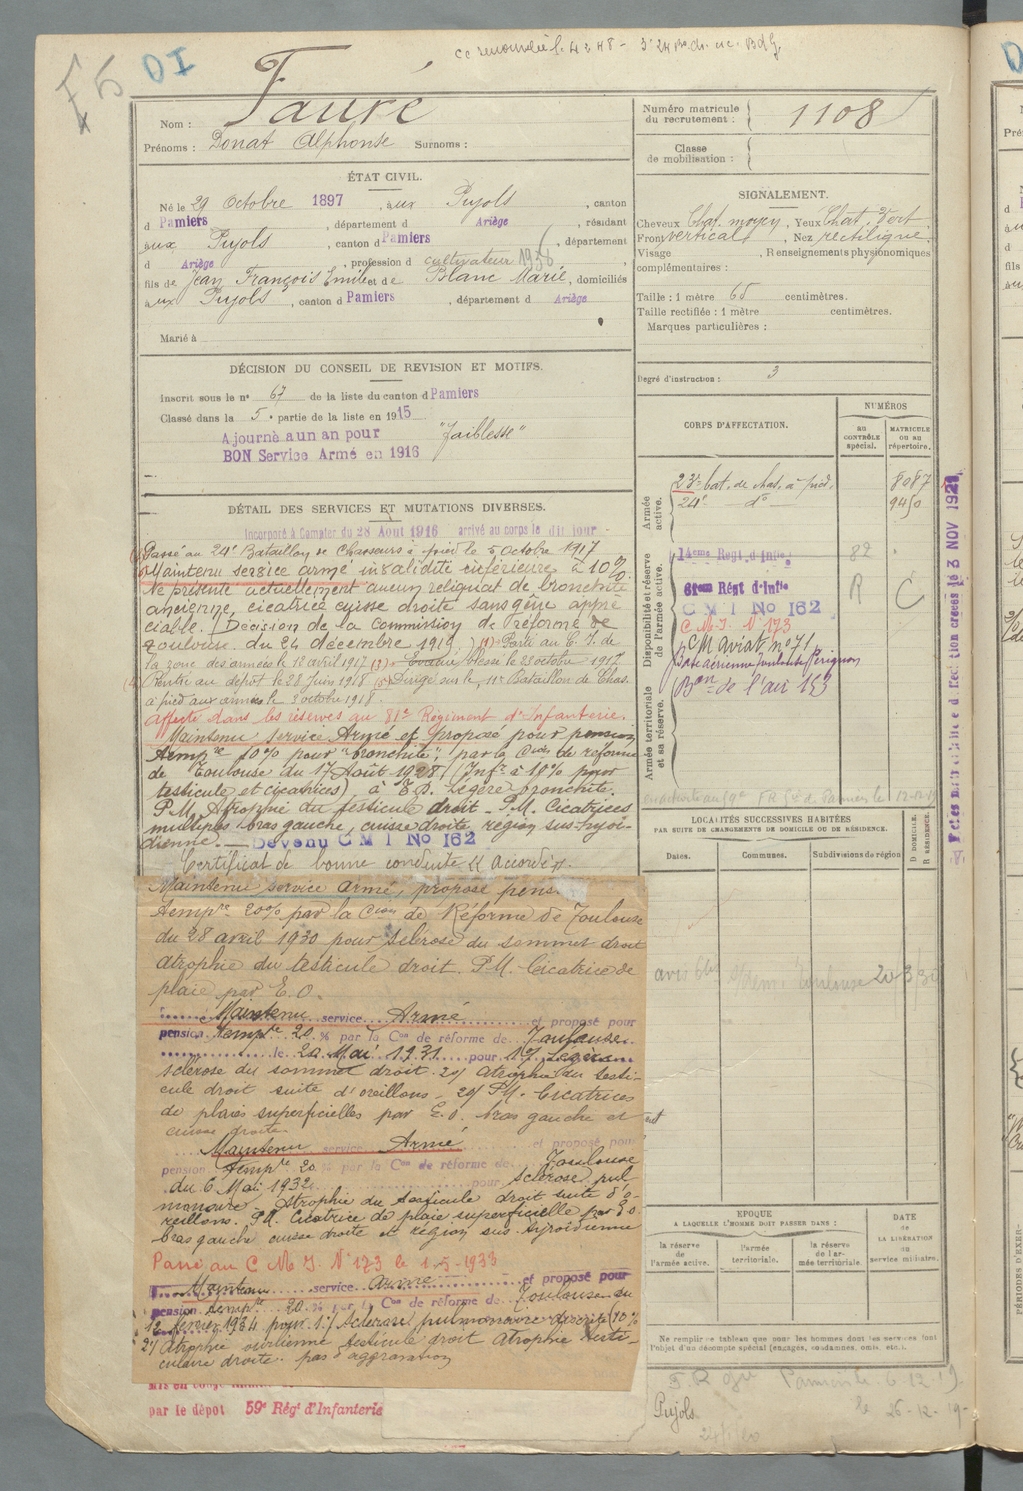 F 5
DI
Fauré
Nom :
Prénoms : Donat Alphonse Surnoms :
ÉTAT CIVIL.
Né le 29 Octobre 1897, aux Pujols, canton
d Pamiers, département d Ariège, résidant
aux Pujols, canton d Pamiers, département
d Ariège, profession d cultivateur 1936
fils de Jean François Emile et de Blanc Marie, domiciliés
aux Pujols, canton d Pamiers, département d Ariège
Marié à
DÉCISION DU CONSEIL DE REVISION ET MOTIFS.
Inscrit sous le n° 67 de la liste du canton d Pamiers
Classé dans la 5e partie de la liste en 1915
Ajourné a un an pour "Faiblesse"
BON Service Armé en 1916
DÉTAIL DES SERVICES ET MUTATIONS DIVERSES.
Incorporé à Compter du 28 Aout 1916 arrivé au corps le dit jour
Passé au 24e Bataillon de Chasseurs à pied le 5 octobre 1917
Maintenu service armé invalidité inférieure à 10%
Ne présente actuellement aucun reliquat de bronchite
ancienne, cicatrice cuisse droite sans gêne appré
ciable. Décision de la Commission de réforme de
Toulouse du 24 décembre 1919. (1) Parti au C. I. de
la zone des armées le 18 avril 1917 (3) Evacué blessé le 23 octobre 1917.
Rentré au dépôt le 28 Juin 1918 (5) Dirigé sur le 11e Bataillon de Chas.
à pied aux armées le 3 octobre 1918.
Affecté dans les réserves au 81e Régiment d'Infanterie.
Maintenu service Armé et proposé pour pension
temp.re 10% pour "bronchite", par la Cion de réforme
de Toulouse du 17 Août 1928 (Infre à 10% pour
testicule et cicatrices) à T.D. Légère bronchite.
P.M. Atrophie du testicule droit. P.M. Cicatrices
multiples bras gauche, cuisse droite, région sus-hyoï-
dienne. — Devenu C M I No 162
Certificat de bonne conduite "Accordé".
Maintenu service armé, proposé pens.
temp.re 20% par la Cion de Réforme de Toulouse
du 28 avril 1930 pour sclérose du sommet droit
atrophie du testicule droit. P.M. Cicatrice de
plaie par E.O.
Maintenu service Armé et proposé pour
pension temp.re 20 % par la Con de réforme de Toulouse
le 20 Mai 1931 pour 1°/ Légère
sclérose du sommet droit. 2°/ Atrophie du testi-
cule droit suite d'oreillons. 2°/ P.M. Cicatrices
de plaies superficielles par E.O. bras gauche et
cuisse droite.
Maintenu service Armé et proposé pour
pension temp.re 20 % par la Con de réforme de Toulouse
du 6 Mai 1932 pour sclérose pul
monaire. Atrophie du testicule droit suite d'o-
reillons. P.M. Cicatrice de plaie superficielle par E.O.
bras gauche cuisse droite et région sus-hyoïdienne
Passé au C M I. N° 173 le 1-5-1933
Maintenu service armé et proposé pour
pension temp.re 20 % par la Con de réforme de Toulouse du
12 février 1934 pour 1°/ Sclérose pulmonaire discrète 10%
2°/ Atrophie ourlienne testicule droit Atrophie testi-
culaire droite. pas d'aggravation
par le dépot 59e Régt d'Infanterie
Numéro matricule
du recrutement : 1108
Classe
de mobilisation :
SIGNALEMENT.
Cheveux Chat. moyen, Yeux Chat. Vert
Front vertical, Nez rectiligne
Visage , Renseignements physionomiques
complémentaires :
Taille : 1 mètre 65 centimètres.
Taille rectifiée : 1 mètre centimètres.
Marques particulières :
Degré d'instruction : 3
CORPS D'AFFECTATION.
NUMÉROS
AU CONTRÔLE spécial.
MATRICULE ou au répertoire.
Armée active.
23e bat. de chas. à pied. 8087
24e do 9450
Disponibilité et réserve de l'armée active.
14eme Regt d'Infie 82
81eme Régt d'Infie R C
C M I No 162
C. M. I. N° 173
CM aviat n° 71
Base aérienne Toulouse
Bon de l'air 153
Armée territoriale et sa réserve.
LOCALITÉS SUCCESSIVES HABITÉES
PAR SUITE DE CHANGEMENTS DE DOMICILE OU DE RÉSIDENCE.
D. DOMICILE.
R. RÉSIDENCE.
Dates.
Communes.
Subdivisions de région
Toulouse 20 3
EPOQUE
A LAQUELLE L'HOMME DOIT PASSER DANS :
DATE
de
LA LIBÉRATION
du
service militaire.
la réserve
de
l'armée active.
l'armée
territoriale.
la réserve
de l'ar-
mée territoriale.
Ne remplir ce tableau que pour les hommes dont les services font
l'objet d'un décompte spécial (engagés, condamnés, omis, etc.).
Pamiers 6-12-19
Pujols
le 26-12-19
PÉRIODES D'EXER-